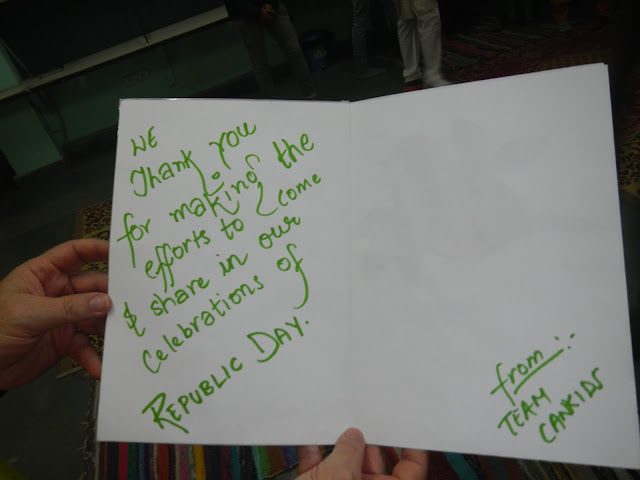 WE
Thank you
for making the
efforts to come
& share in our
Celebrations of
REPUBLIC DAY.
from :-
TEAM
CANKIDS